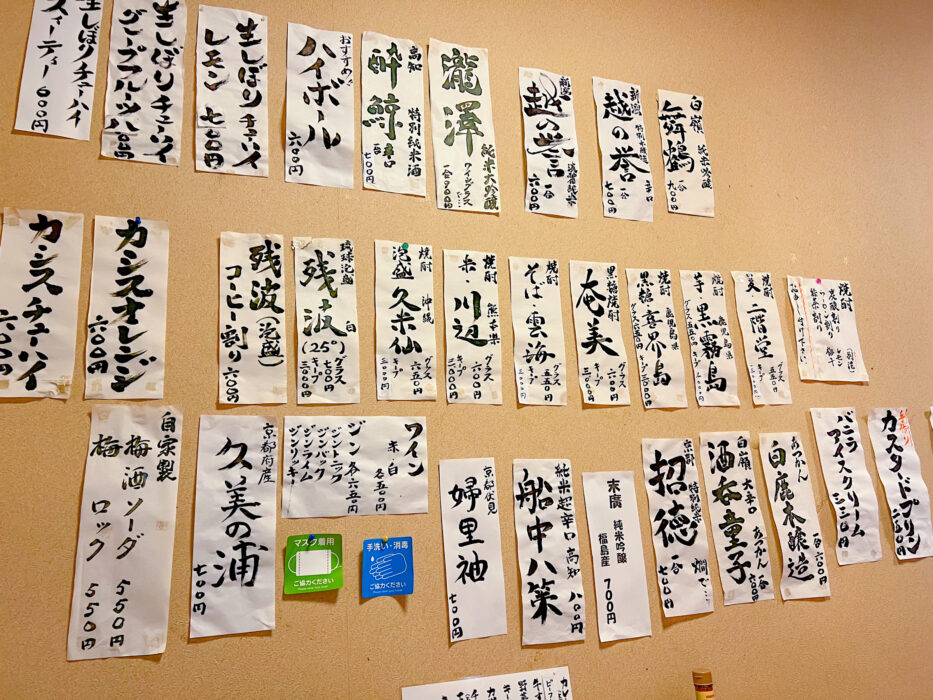 生しぼりチューハイ
スムーディー 600円
生しぼりチューハイ
グレープフルーツハ
生しぼりチューハイ
レモン 七〇〇円
おすすめ
ハイボール
六〇〇円
高知
酔鯨
特別純米酒
一合 辛口
七〇〇円
瀧澤
純米大吟醸
ワイングラスで…
一合 九〇〇円
新潟
越の誉
淡麗純米
一合
六〇〇円
新潟
越の誉
特別本醸造
辛口
一合
七〇〇円
白嶺
舞鶴
純米吟醸
一合
九〇〇円
カシスチューハイ
六〇〇円
カシスオレンジ
六〇〇円
残波(泡盛)
コーヒー割り
六〇〇円
琉球泡盛
残波 白
(25°)
グラス
七〇〇円
キープ
三八〇〇円
焼酎 沖縄
泡盛 久米仙
グラス
六五〇円
キープ
三〇〇〇円
焼酎 熊本県
米・川辺
グラス
六〇〇円
キープ
三八〇〇円
焼酎
そば 雲海
グラス
五五〇円
黒糖焼酎
奄美
グラス
六〇〇円
焼酎 鹿児島県
黒糖・喜界島
グラス六五〇円
焼酎 鹿児島県
芋・黒霧島
グラス五五〇円
焼酎
麦・二階堂
グラス
五五〇円
焼酎
炭酸割り
ウーロン割り
緑茶割り
レモン
梅干
自家製
梅酒ソーダ 550円
梅ロック 550円
京都府産
久美の浦
七〇〇円
ワイン
赤・白 各五〇〇円
ジン 各六五〇円
ジントニック
ジンバック
ジンライム
ジンリッキー
マスク着用
ご協力ください
手洗い・消毒
ご協力ください
京都伏見
婦里袖
七〇〇円
純米超辛口 高知
船中八策
八〇〇円
末廣 純米吟醸
福島産 700円
京都 特別純米
招徳 燗で…
一合
七〇〇円
白嶺 大辛口
酒呑童子
あつかん
一合
七〇〇円
あつかん
白鹿 本醸造
一合 六〇〇円
バニラ
アイスクリーム
三五〇円
手作り
カスタードプリン